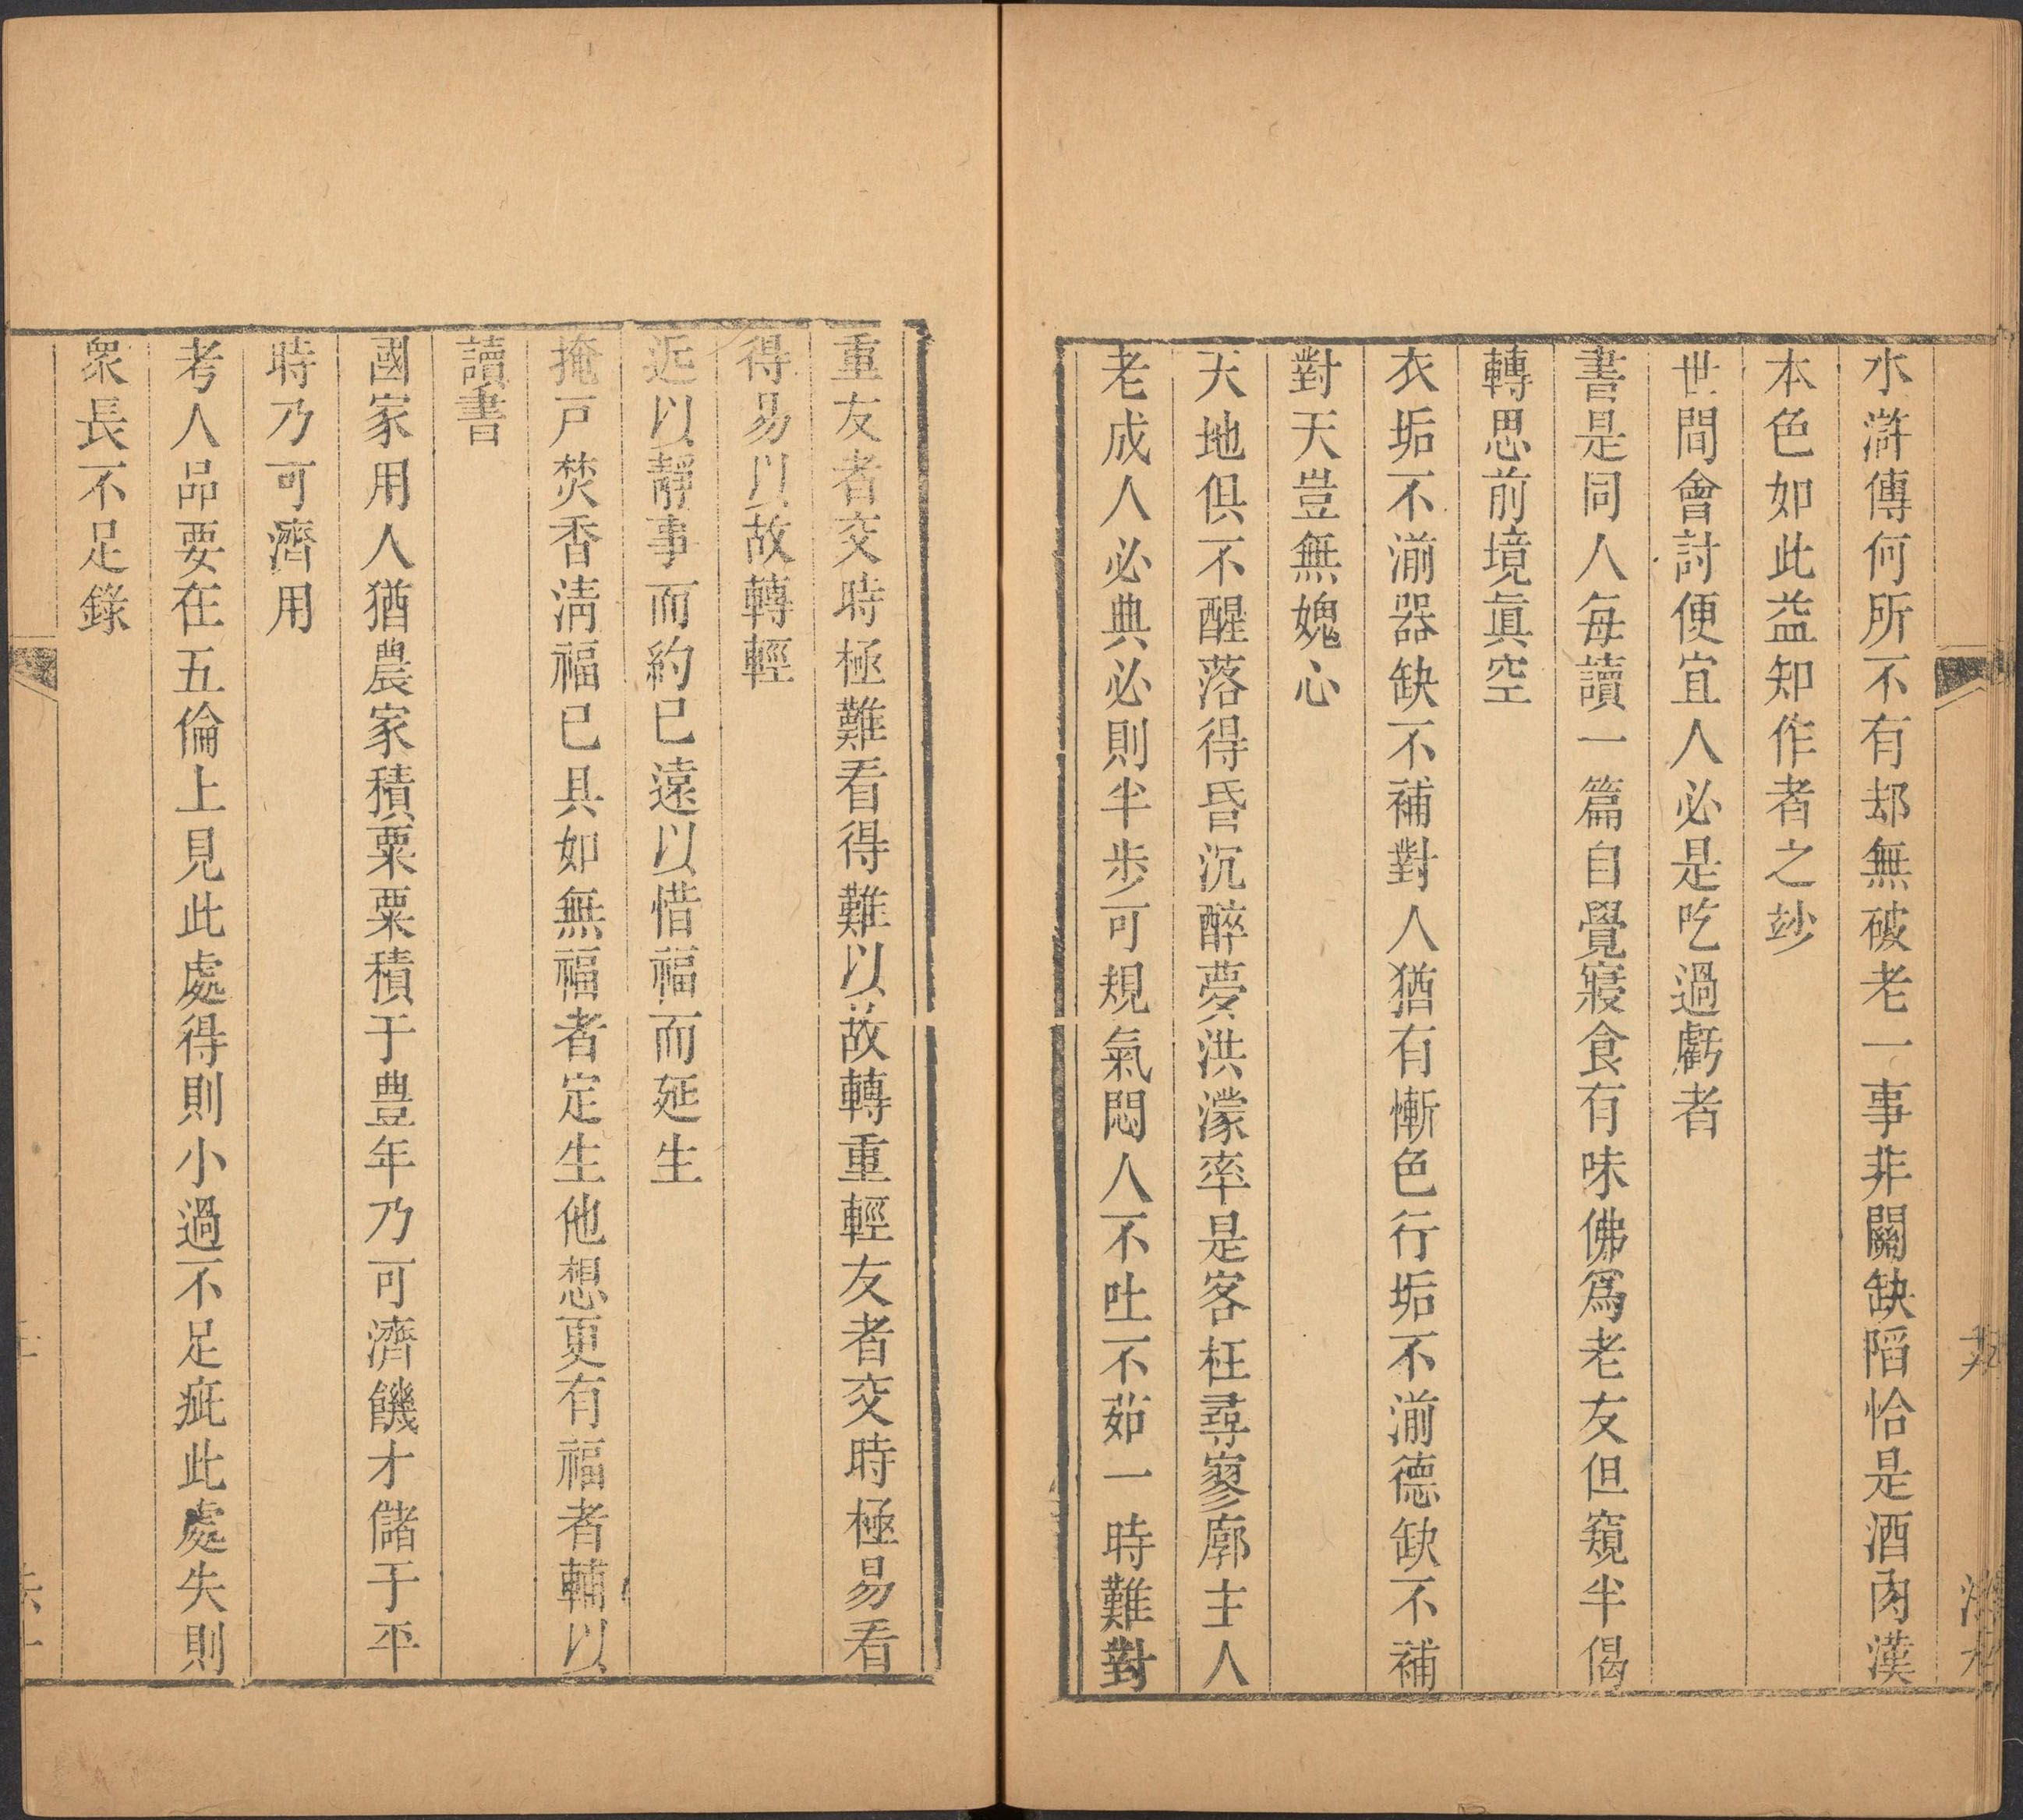 水滸傳何所不有却無破老一事非關缺陷恰是酒肉漢
本色如此益知作者之玅
世間會討便宜人必是吃過虧者
書是同人每讀一篇自覺寢食有味佛爲老友但窺半偈
轉思前境眞空
衣垢不湔器缺不補對人猶有慚色行垢不湔德缺不補
對天豈無媿心
天地俱不醒落得昏沉醉夢洪濛率是客枉尋寥廓主人
老成人必典必則半步可規氣悶人不吐不茹一時難對
重友者交時極難看得難以故轉重輕友者交時極易看
得易以故轉輕
近以靜事而約已遠以惜福而延生
掩戸焚香淸福已具如無福者定生他想更有福者輔以
讀書
國家用人猶農家積粟粟積于豊年乃可濟饑才儲于平
時乃可濟用
考人品要在五倫上見此處得則小過不足疵此處失則
衆長不足錄